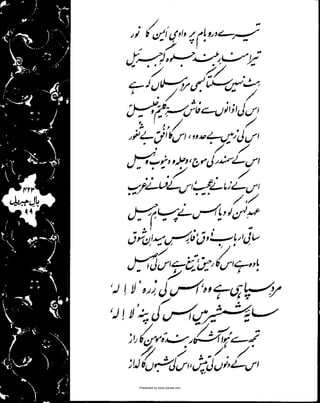 تیرے در و بام پر وادیِ ایمن کا نور
تیرا منارِ بلند جلوہ گہِ جبرئیل
مٹ نہیں سکتا کبھی مردِ مسلماں کہ ہے
اس کی اذانوں سے فاش سرِّ کلیمؑ و خلیلؑ
اس کی زمیں بے حدود، اس کا افق بے ثغور
اس کے سمندر کی موج، دجلہ و دنیوب و نیل
اس کے زمانے عجیب، اس کے فسانے غریب
عہدِ کہن کو دیا اس نے پیامِ رحیل
ساقیِ اربابِ ذوق، فارسِ میدانِ شوق
بادہ ہے اس کا رحیق، تیغ ہے اس کی اصیل
مردِ سپاہی ہے وہ، اس کی زرہ 'لا الٰہ'
سایۂ شمشیر میں اس کی پنہ 'لا الٰہ'
تجھ سے ہوا آشکار بندۂ مومن کا راز
اس کے دنوں کی تپش، اس کی شبوں کا گداز
۴۲۳
بالِ جبریل
۹۹
Presented by